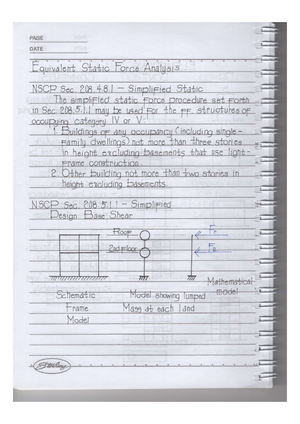 PAGE
DATE
Equivalent Static Force Analysis
NSCP Sec. 208.4.8.1 – Simplified Static
The simplified static force procedure set forth
in Sec. 208.5.1.1 may be used for the ff. structures of
occupying category IV or V:
1. Buildings of any occupancy (including single-
family dwellings) not more than three stories
in height excluding basements that use light-
frame construction.
2. Other building not more than two stories in
height excluding basements.
NSCP Sec. 208.5.1.1 – Simplified
Design Base Shear
Roof
2nd floor
Schematic
Frame
Model
Model showing lumped
Mass at each
Mathematical
model
Sterling